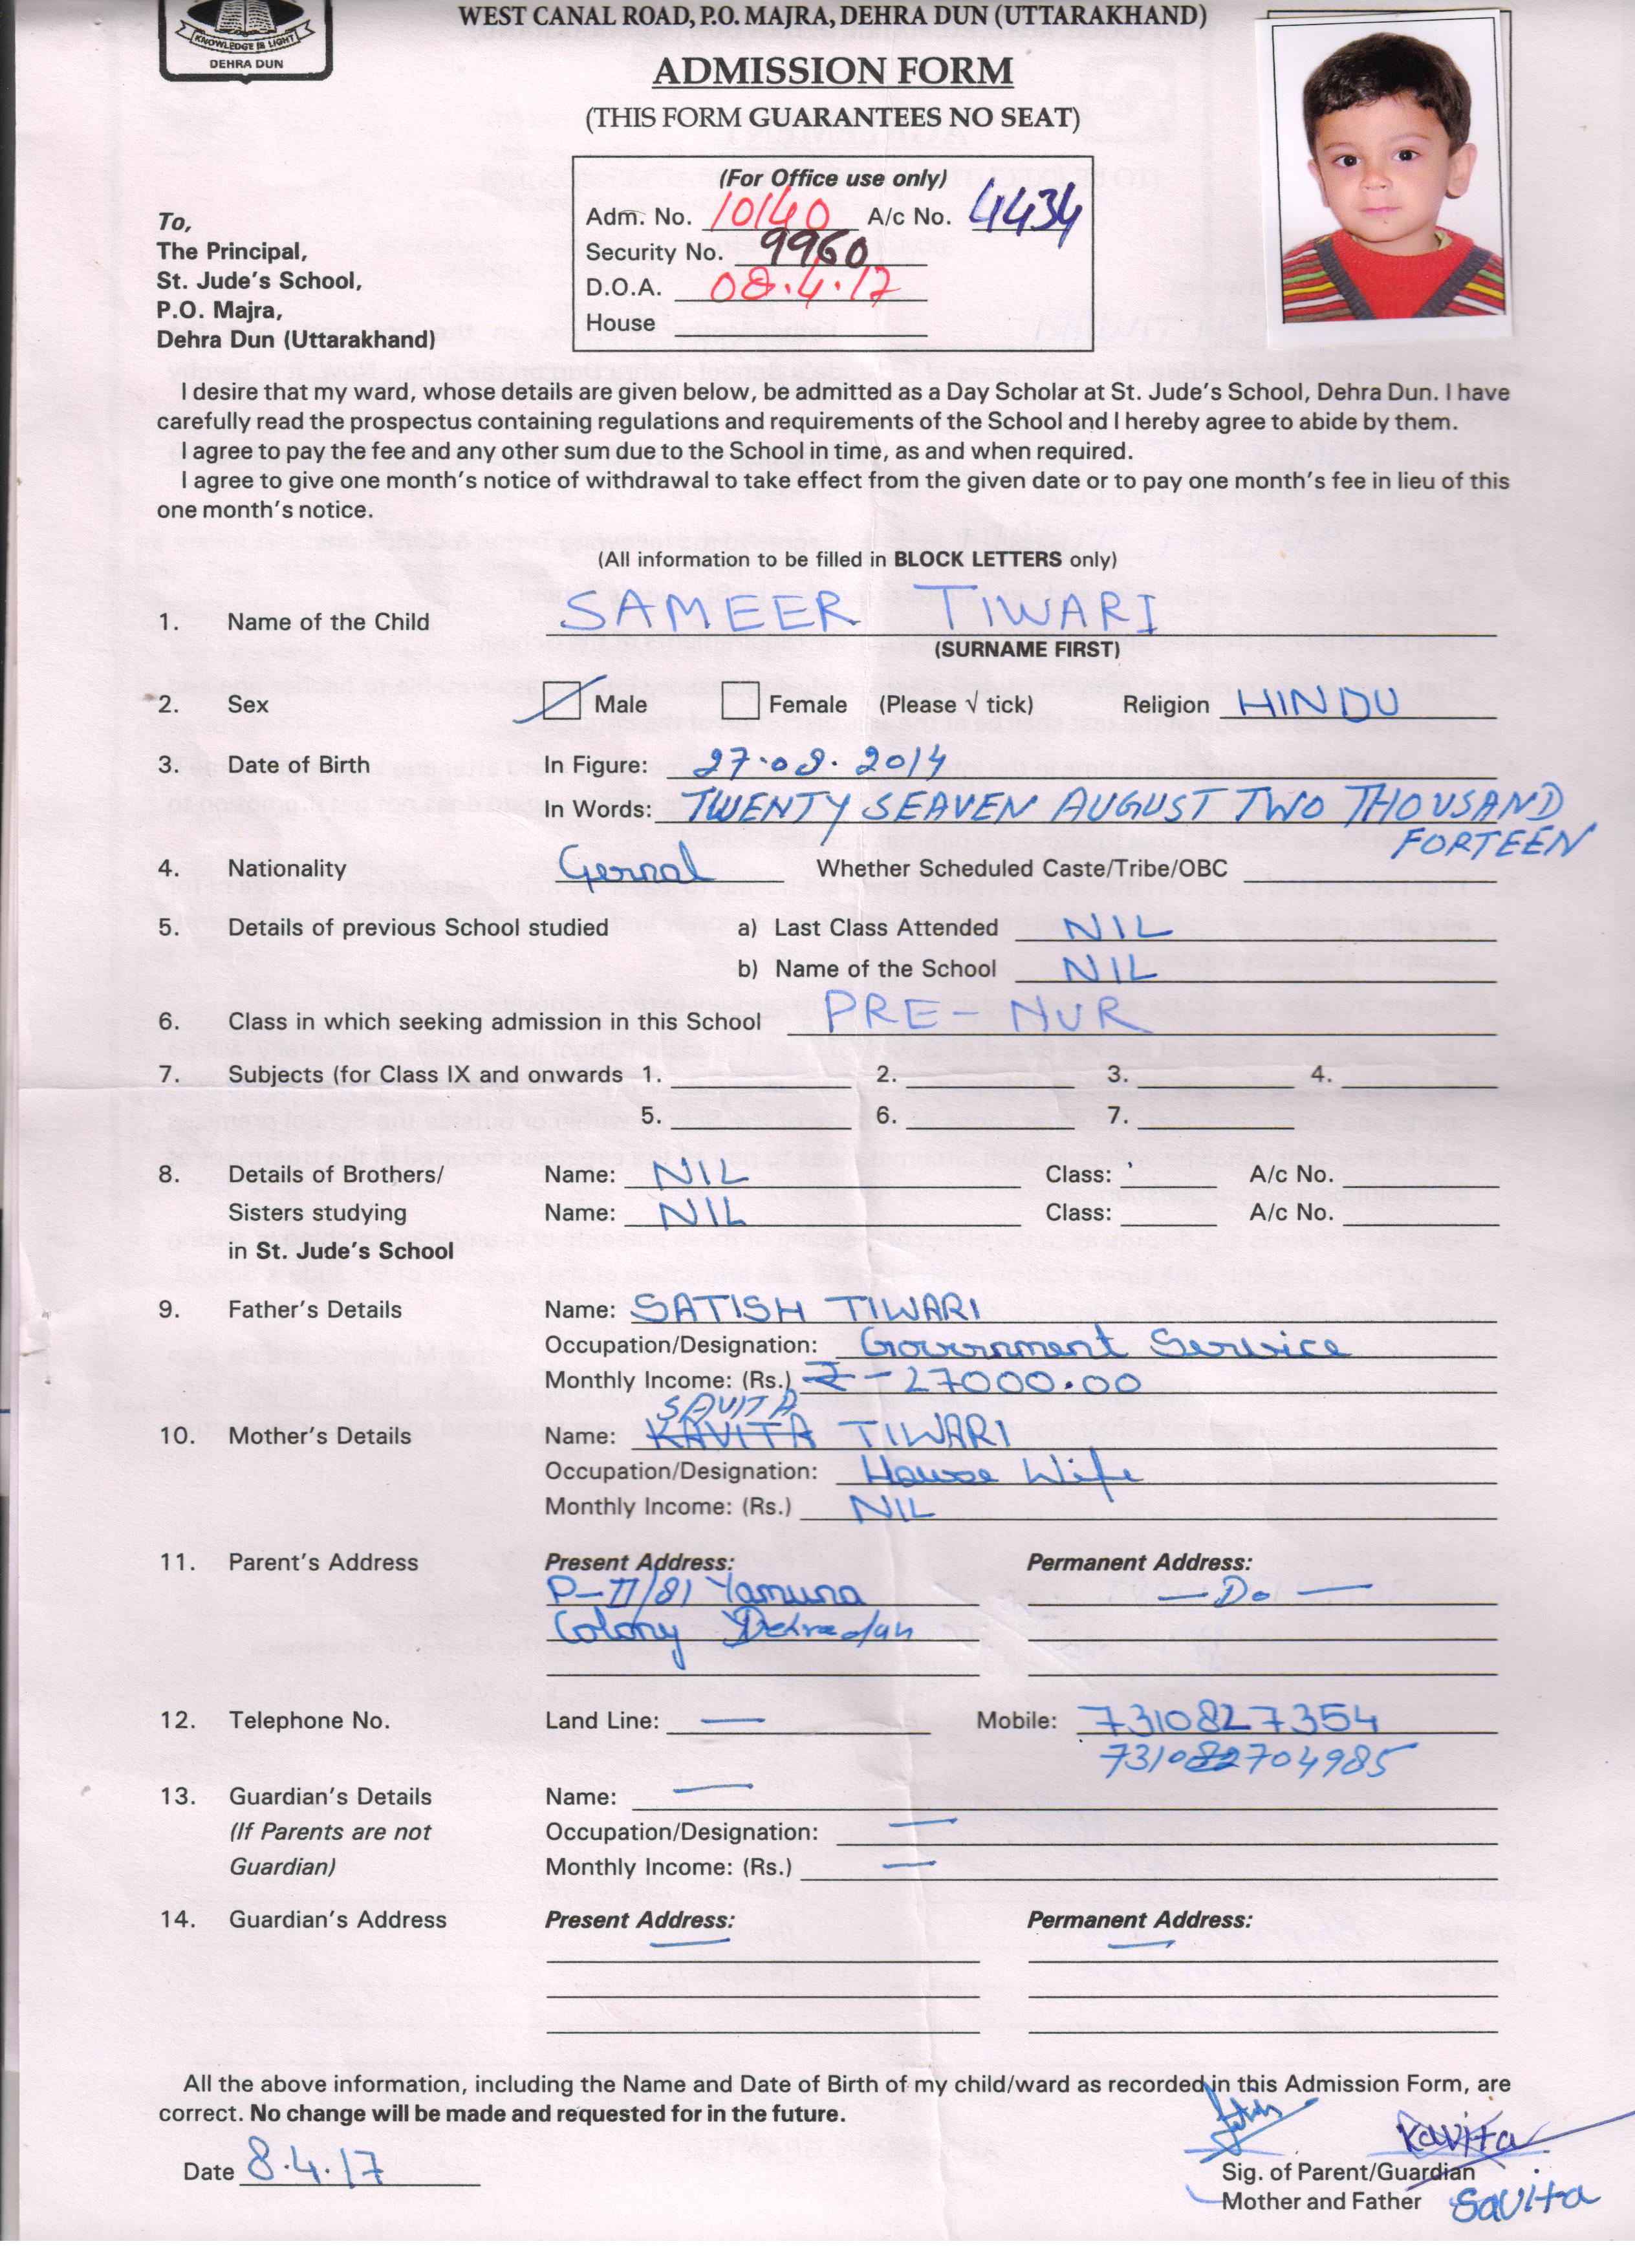 KNOWLEDGE IS LIGHT
DEHRA DUN
WEST CANAL ROAD, P.O. MAJRA, DEHRA DUN (UTTARAKHAND)
ADMISSION FORM
(THIS FORM GUARANTEES NO SEAT)
(For Office use only)
Adm. No. 10140 A/c No. 4434
Security No. 9960
D.O.A. 08.4.17
House
To,
The Principal,
St. Jude's School,
P.O. Majra,
Dehra Dun (Uttarakhand)
I desire that my ward, whose details are given below, be admitted as a Day Scholar at St. Jude's School, Dehra Dun. I have
carefully read the prospectus containing regulations and requirements of the School and I hereby agree to abide by them.
I agree to pay the fee and any other sum due to the School in time, as and when required.
I agree to give one month's notice of withdrawal to take effect from the given date or to pay one month's fee in lieu of this
one month's notice.
(All information to be filled in BLOCK LETTERS only)
1. Name of the Child SAMEER TIWARI
(SURNAME FIRST)
2. Sex Male Female (Please √ tick) Religion HINDU
3. Date of Birth In Figure: 27.08.2014
In Words: TWENTY SEAVEN AUGUST TWO THOUSAND
FORTEEN
4. Nationality Gernal Whether Scheduled Caste/Tribe/OBC
5. Details of previous School studied a) Last Class Attended NIL
b) Name of the School NIL
6. Class in which seeking admission in this School PRE-NUR
7. Subjects (for Class IX and onwards 1. 2. 3. 4.
5. 6. 7.
8. Details of Brothers/ Name: NIL Class: A/c No.
Sisters studying Name: NIL Class: A/c No.
in St. Jude's School
9. Father's Details Name: SATISH TIWARI
Occupation/Designation: Government Service
Monthly Income: (Rs.) ₹-27000.00
SAVITA
10. Mother's Details Name: KAVITA TIWARI
Occupation/Designation: House Wife
Monthly Income: (Rs.) NIL
11. Parent's Address Present Address: Permanent Address:
P-II/81 Yamuna — Do —
Colony Dehradun
12. Telephone No. Land Line: — Mobile: 7310827354
731082704985
13. Guardian's Details Name: —
(If Parents are not Occupation/Designation: —
Guardian) Monthly Income: (Rs.) —
14. Guardian's Address Present Address: Permanent Address:
— —
All the above information, including the Name and Date of Birth of my child/ward as recorded in this Admission Form, are
correct. No change will be made and requested for in the future.
Kavita
Date 8.4.17 Sig. of Parent/Guardian
Mother and Father Savita